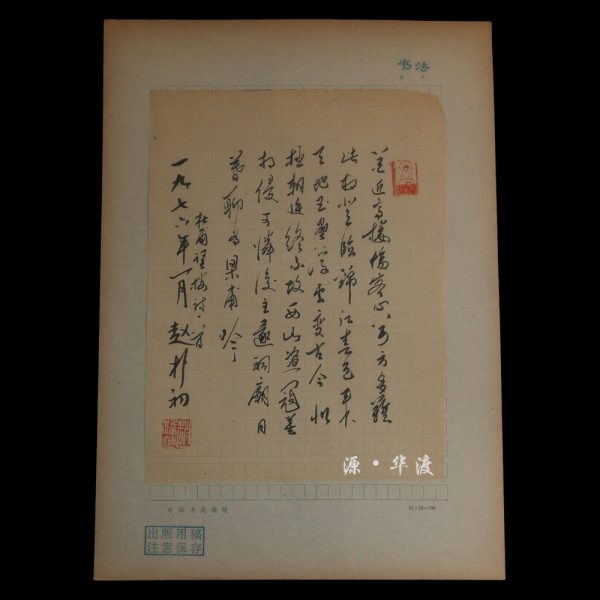 书法
花近高楼傷客心万方多難
此登臨錦江春色来
天地玉壘浮雲變古今北
極朝廷終不改西山盗寇莫
相侵可憐後主還祠廟日
暮聊為梁甫吟
杜甫登楼诗一首
一九七六年一月 趙朴初
源·华渡
中华书局
出版用稿
注意保存